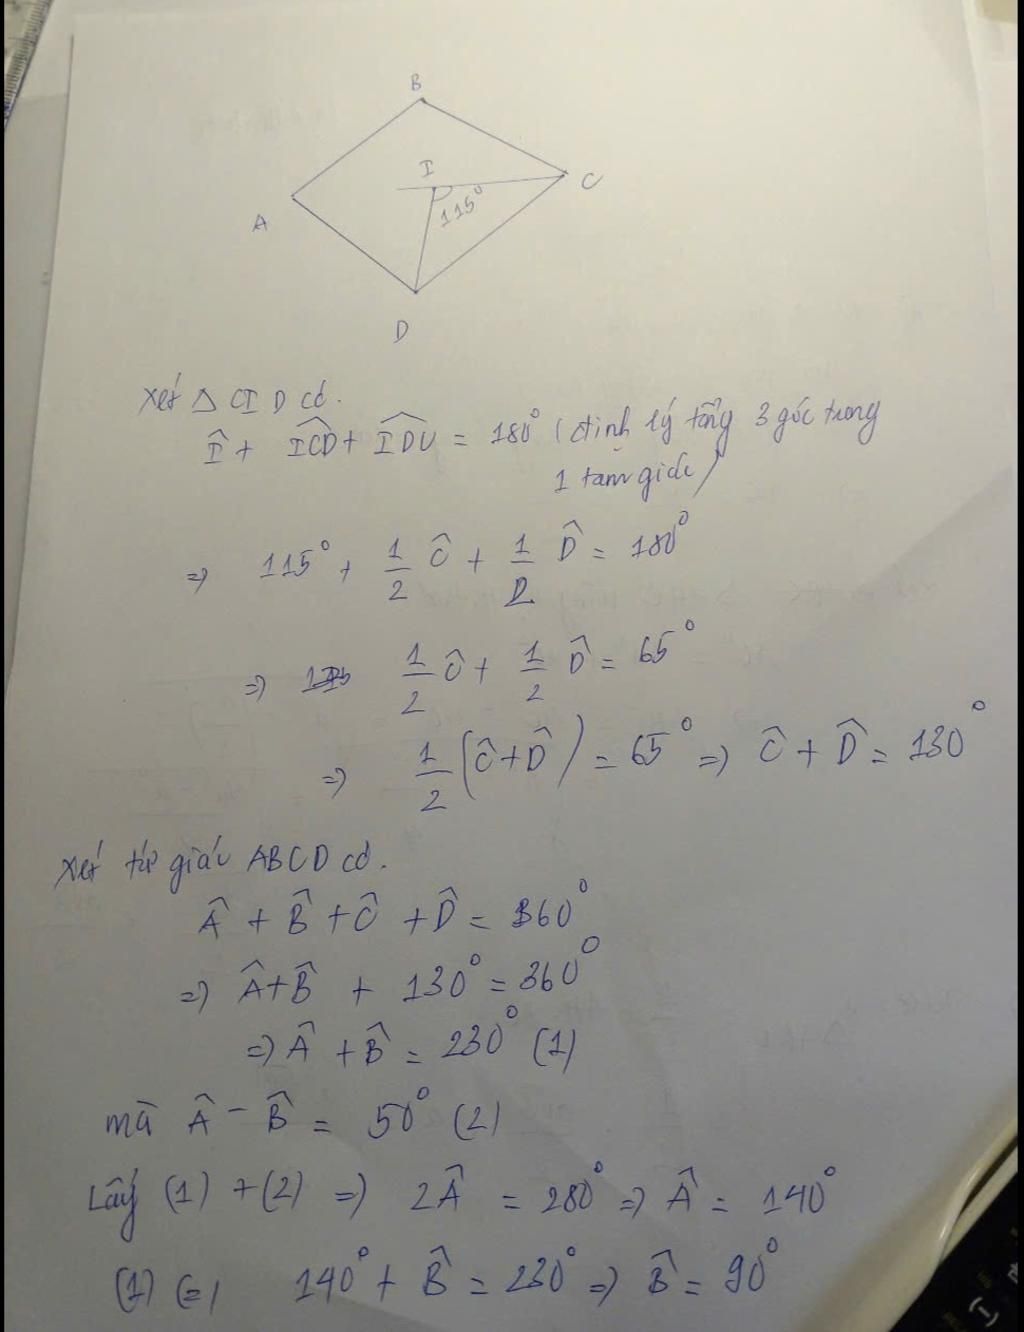 B
I
C
115°
A
D
Xét △ CI D có.
Î + ICD̂ + IDĈ = 180° (định lý tổng 3 góc trong
1 tam giác)
=> 115° + 1/2 Ĉ + 1/2 D̂ = 180°
=> 1/2 Ĉ + 1/2 D̂ = 65°
=> 1/2 (Ĉ + D̂) = 65° => Ĉ + D̂ = 130°
Xét tứ giác ABCD có.
Â + B̂ + Ĉ + D̂ = 360°
=> Â + B̂ + 130° = 360°
=> Â + B̂ = 230° (1)
mà Â - B̂ = 50° (2)
Lấy (1) + (2) => 2Â = 280° => Â = 140°
(1) (=) 140° + B̂ = 230° => B̂ = 90°